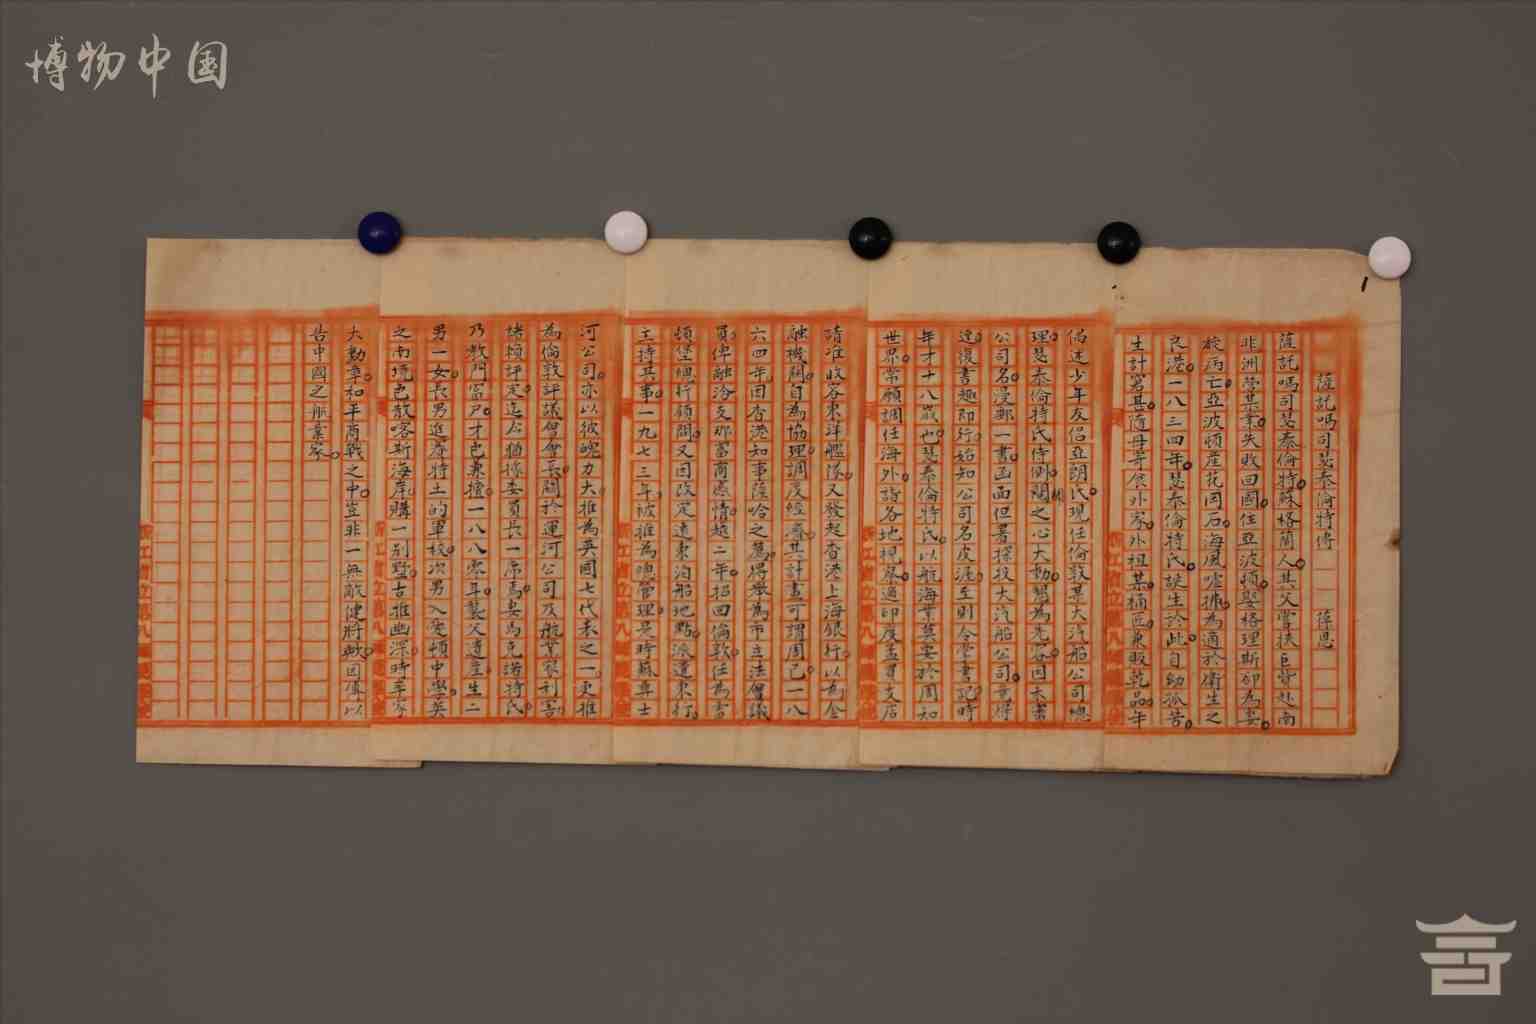 博物中国
薩託嗎司瑟泰倫特傳 薛恩
薩託嗎司瑟泰倫特。蘇格蘭人。其父嘗挟巨資赴南
非洲營某業。失敗回國。住亞波頓。娶格理斯郤為妻。
旋病亡。亞波頓產花岡石。海風噓拂。為適於衛生之
良港。一八三四年。瑟泰倫特氏。誕生於此。自幼孤苦。
生計窘甚。隨母寄食外家。外祖某。桶匠。兼販乾品。年
偈述少年友侶亞朗氏。現任倫敦某大汽船公司總
理。瑟泰倫特氏侍側。聞之心大動。懇為先容。因未審
公司名。漫郵一書。函面但署探投大汽船公司。竟得
達。復書趣即行。始知公司名皮浞。至則令掌書記。時
年才十八歲也。瑟泰倫特氏。以航海業莫要於周知
世界。常願調任海外。詣各地視察。適印度孟買支店
請准收容東洋艦隊。又發起香港上海銀行。以為金
融機關。自為協理。調度經濟。其計畫可謂周已。一八
六四年。因香港知事薩哈之薦。將舉為市立法會議
員。俾融洽支那富商感情。越二年。招回倫敦。任為書
頓堡總行顧問。又因改定遠東泊船地點。派遣東行。
主持其事。一九七三年。被推為總管理。是時蘇專士
河公司。亦以彼魄力大。推為英國七代表之一。更推
為倫敦評議會會長。關於運河公司及航業家利害。
堵頓評定。迄今猶據委員長一席焉。娶馬克諾特氏。
乃教門富戶。才色兼擅。一八八零年。襲父遺產。生二
男一女。長男進。次男入愛頓中學。英
之南境色散喀斯海岸。購一别墅。古雅幽深。時率家
大勳章。和平商戰之中。豈非一無敵健將歟。因傳以
告中國之航業家。